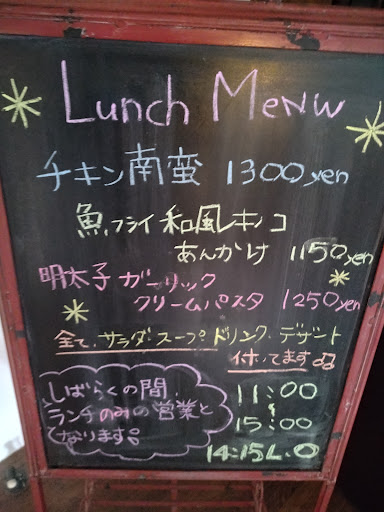 Lunch Menu
チキン南蛮 1300yen
魚フライ和風キノコ
あんかけ 1150yen
明太子ガーリック
クリームパスタ 1250yen
全て、サラダ・スープ・ドリンク・デザート
付いてます♫
しばらくの間
ランチのみの営業と
なります。
11:00
〜
15:00
14:15L.O